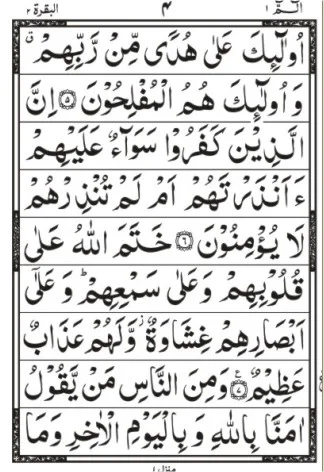 الٓمّٓ ١ ٤ البقرة ٢
اُولٰٓئِكَ عَلٰى هُدًى مِّنْ رَّبِّهِمْ ۙ
وَ اُولٰٓئِكَ هُمُ الْمُفْلِحُوْنَ ۝٥ اِنَّ
الَّذِيْنَ كَفَرُوْا سَوَآءٌ عَلَيْهِمْ
ءَاَنْذَرْتَهُمْ اَمْ لَمْ تُنْذِرْهُمْ
لَا يُؤْمِنُوْنَ ۝٦ خَتَمَ اللّٰهُ عَلٰى
قُلُوْبِهِمْ وَعَلٰى سَمْعِهِمْ ؕ وَ عَلٰٓى
اَبْصَارِهِمْ غِشَاوَةٌ ز وَّلَهُمْ عَذَابٌ
عَظِيْمٌ ۝٧ ع وَمِنَ النَّاسِ مَنْ يَّقُوْلُ
اٰمَنَّا بِاللّٰهِ وَ بِالْيَوْمِ الْاٰخِرِ وَمَا
منزل ١